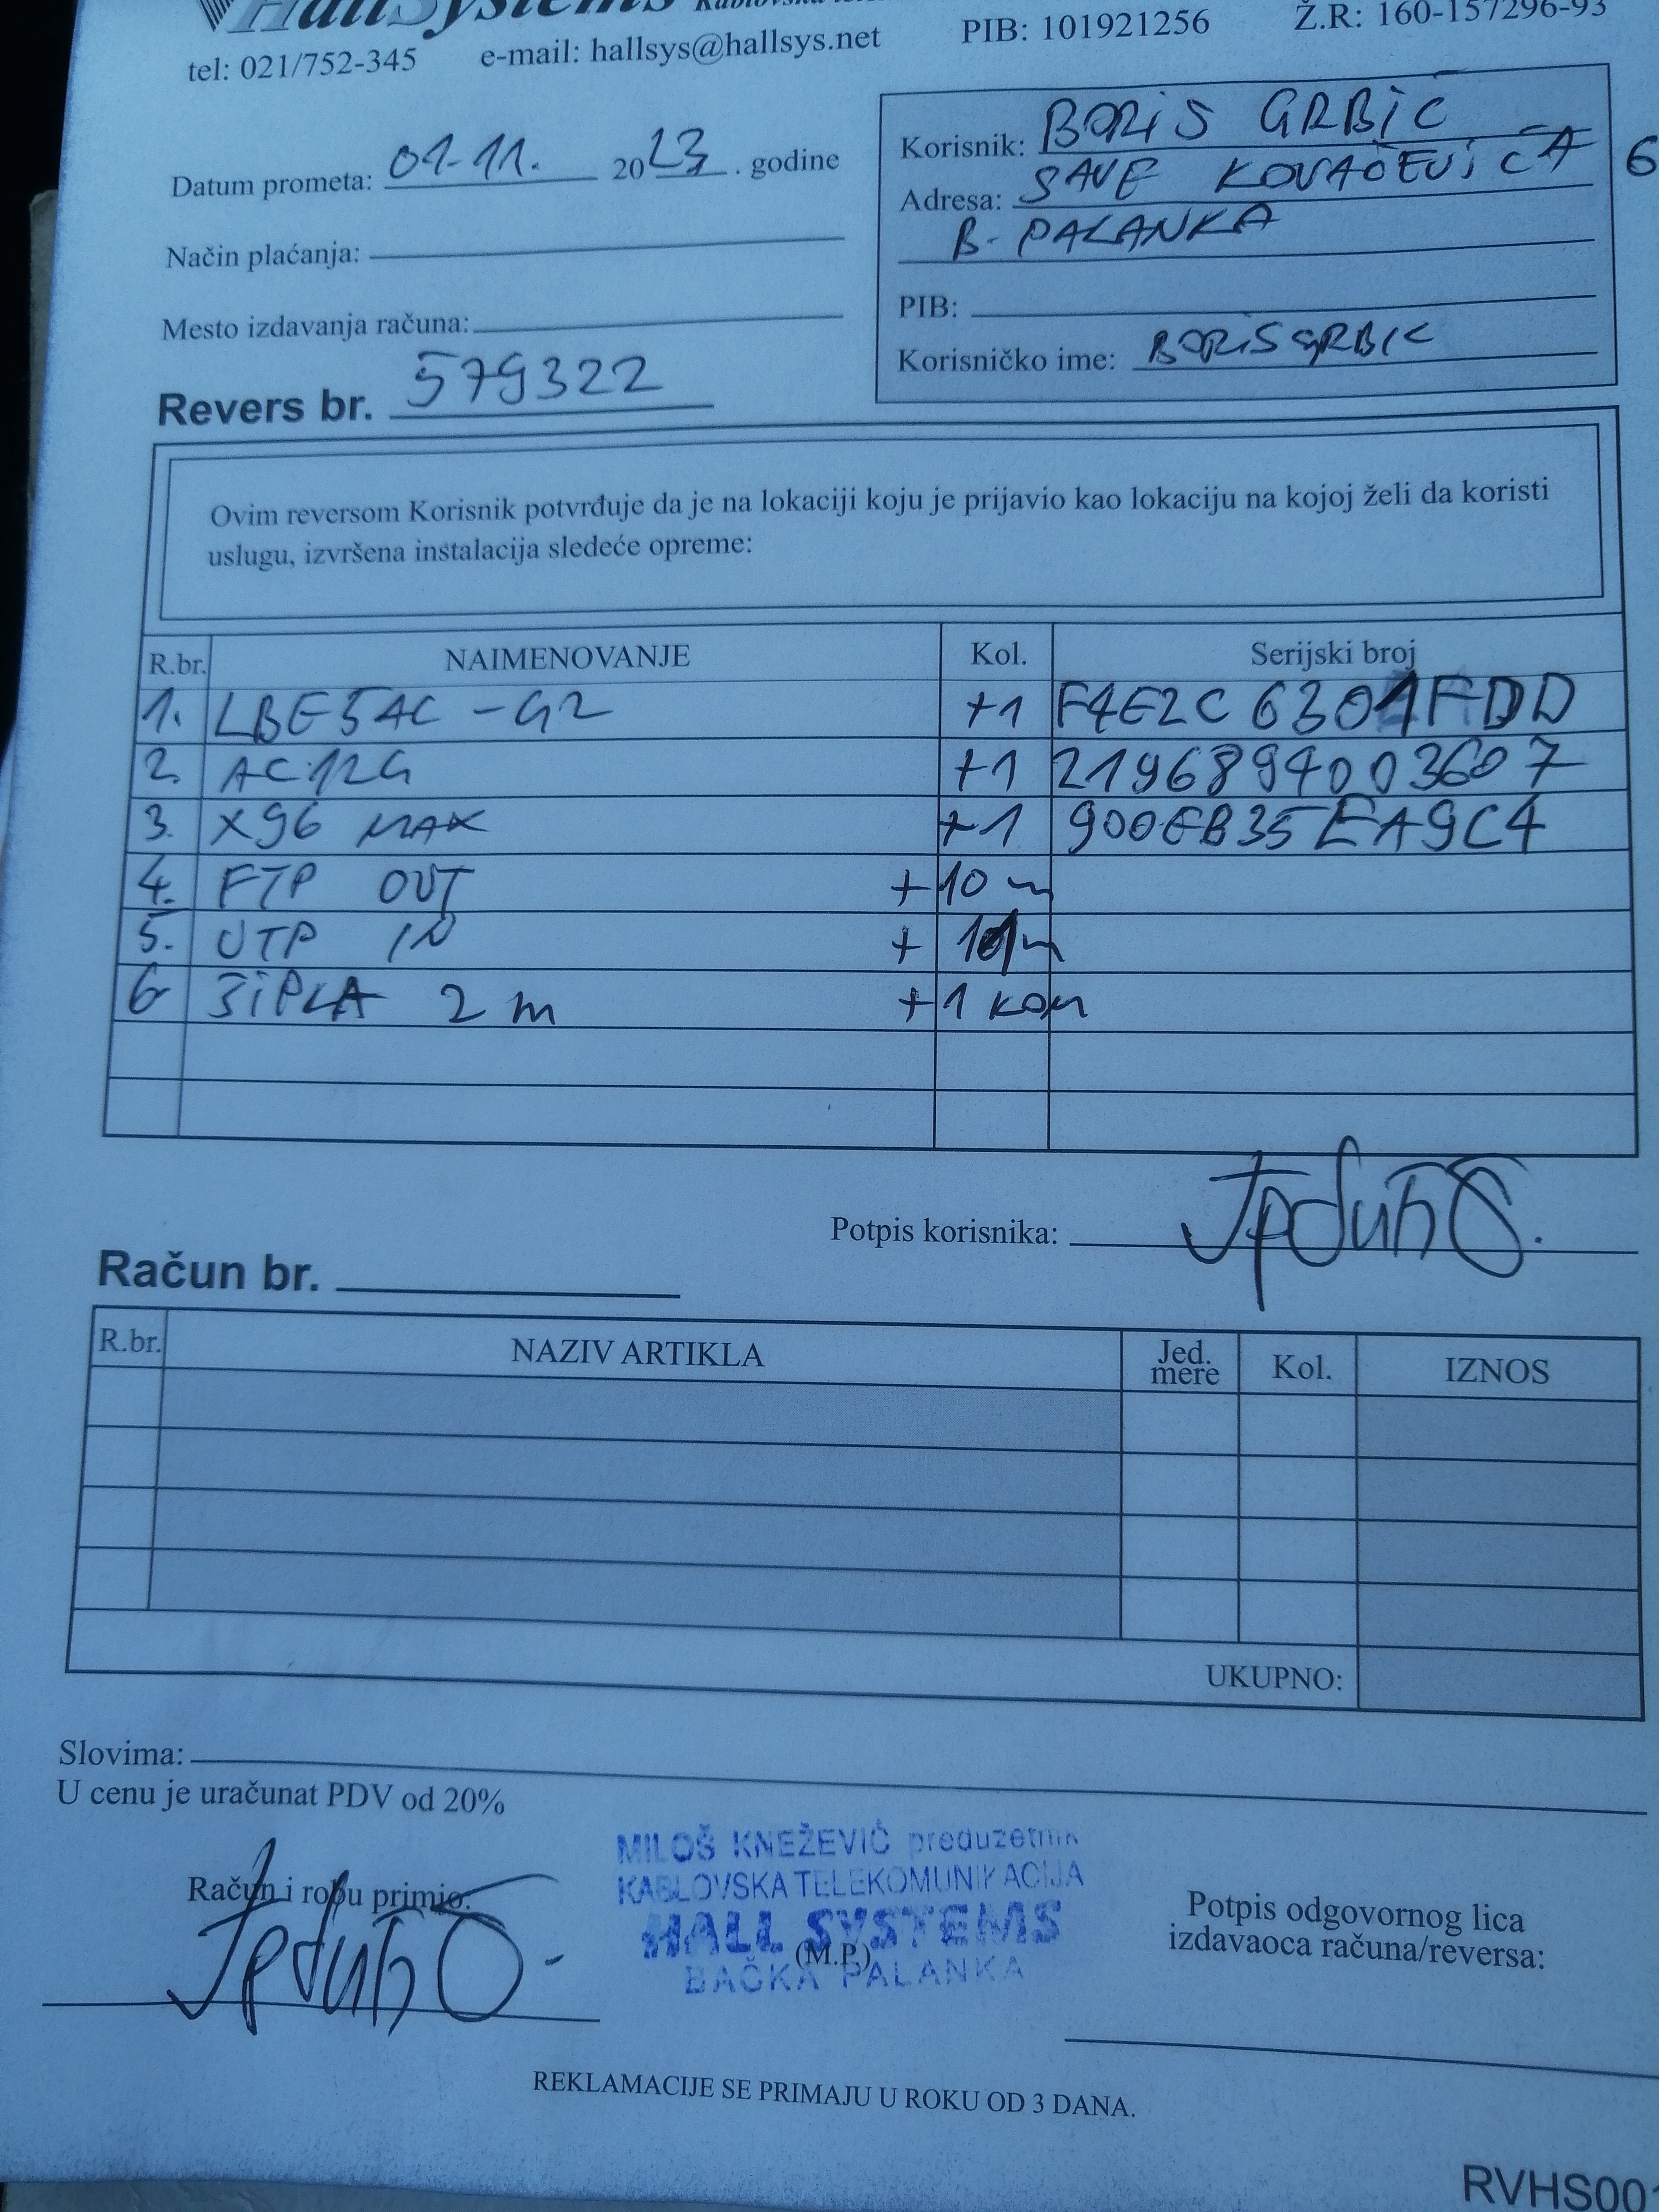 HallSystems
tel: 021/752-345 e-mail: hallsys@hallsys.net PIB: 101921256 Ž.R: 160-157296-93
Datum prometa: 01-11. 2023. godine
Način plaćanja:
Mesto izdavanja računa:
Revers br. 579322
Korisnik: BORIS GRBIC
Adresa: SAVE KOVAČEVIĆA 6
B-PALANKA
PIB:
Korisničko ime: BORISGRBIC
Ovim reversom Korisnik potvrđuje da je na lokaciji koju je prijavio kao lokaciju na kojoj želi da koristi
uslugu, izvršena instalacija sledeće opreme:
R.br. NAIMENOVANJE Kol. Serijski broj
1. LBE5AC-G2 +1 F4E2C6301FDD
2. AC12G +1 2196894003607
3. X96 MAX +1 900EB35EA9C4
4. FTP OUT +10 m
5. UTP IN +
6 ŠIPLA 2 m +1 kom
Potpis korisnika:
Račun br.
R.br. NAZIV ARTIKLA Jed. mere Kol. IZNOS
UKUPNO:
Slovima:
U cenu je uračunat PDV od 20%
Račun i robu primio:
MILOŠ KNEŽEVIĆ preduzetnik
KABLOVSKA TELEKOMUNIKACIJA
HALL SYSTEMS
(M.P.)
BAČKA PALANKA
Potpis odgovornog lica
izdavaoca računa/reversa:
REKLAMACIJE SE PRIMAJU U ROKU OD 3 DANA.
RVHS001